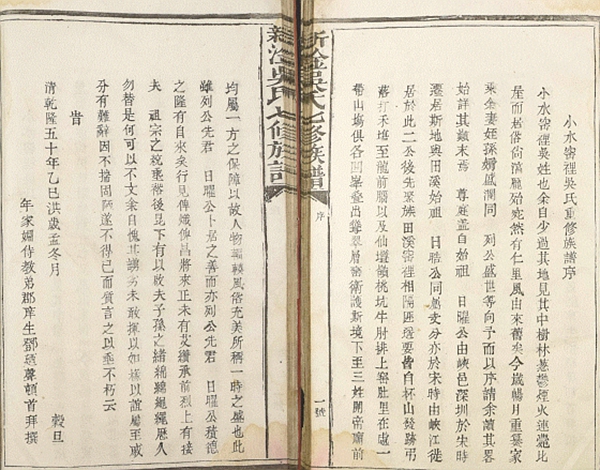 小水窖里吳氏重修族譜序
小水窖里吳姓也余自少過其地見其中樹林葱鬱煙火連甍比
屋而居俗尚淳龐殆宛然有仁里風由來舊矣今歲暢月重纂家
乘余妻姪孫感澗同 列公盛世等向予而以序請余讀其畧
始詳其顛末焉 尊庭蓋自始祖 日曜公由峽邑深圳於宋時
遷居斯地與田溪始祖 日皓公同處支分亦於宋時由峽江徙
居於此二公後先聚族田溪窖裡相隔匪遙要皆自杯山發跡弔
蔣打禾塢至龍前腦以及仙壇嶺桃坑牛肘排上窰肚里在處一
帶山塲俱各囬峯疊出聳翠層密衛護斯境下至三姓關帝廟前
新淦吳氏七修族譜
序
一號
新淦吳氏七修族譜
均屬一方之保障以故人物輻輳風俗充美所稱一時之盛也此
雖列公先君 日曜公卜居之善而亦列公先君 日曜公積德
之隆有自來矣行見俾熾俾昌將來正未有艾纘承前烈上有接
夫 祖宗之統垂裕後昆下有以啟夫子孫之緒綿綿繩繩歷久
勿替是何可以不文余自愧其譾劣未敢揮以如椽以誼屬至戚
分有難辭因不揣固陋遂不得已而質言之以垂不朽云
旹
清乾隆五十年乙巳洪歲孟冬月 穀旦
年家姻侍教弟郡庠生鄧聲頓首拜撰